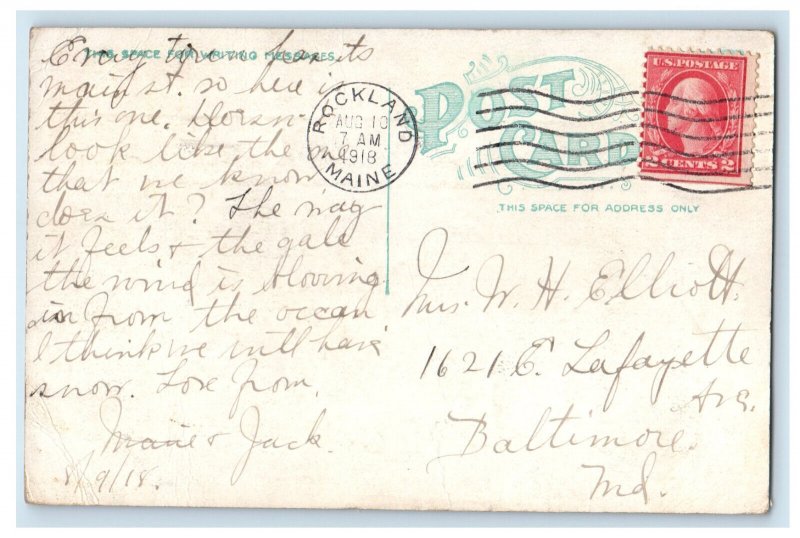 THIS SPACE FOR WRITING MESSAGES
Every town has its
main st. so here is
this one. Doesn't
look like the one
that we know
does it? The way
it feels & the gale
the wind is blowing
in from the ocean
I think we will have
snow. Love from
Marie & Jack.
8/9/18.
ROCKLAND
AUG 10
7 AM
1918
MAINE
POST
CARD
THIS SPACE FOR ADDRESS ONLY
U.S. POSTAGE
2 CENTS 2
Mrs. W. H. Elliott,
1621 E. Lafayette
Ave.
Baltimore.
Md.